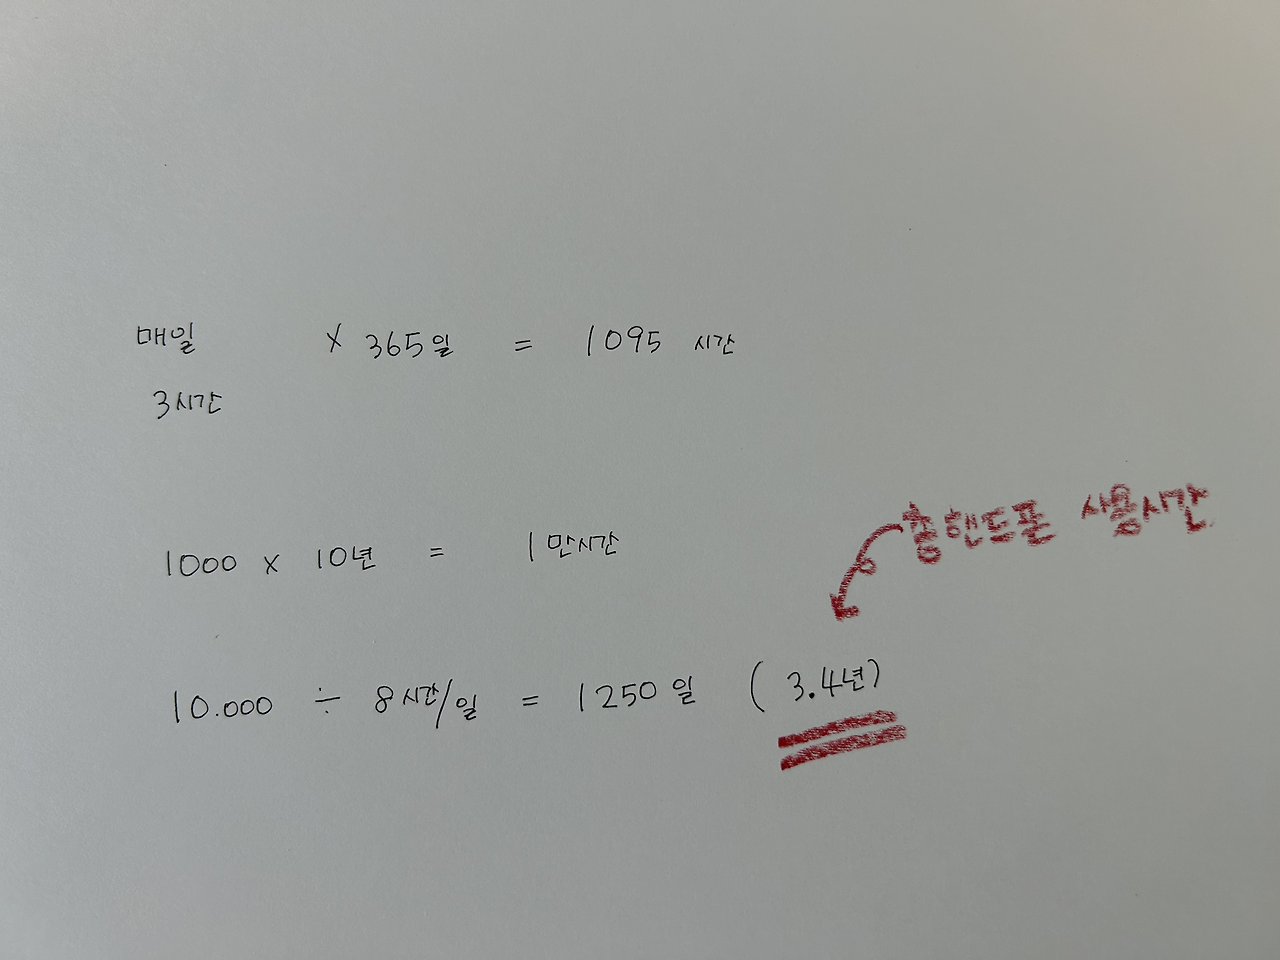 매일 × 365일 = 1095 시간
3시간
총핸드폰 사용시간
1000 × 10년 = 1만시간
10.000 ÷ 8시간/일 = 1250일 (3.4년)